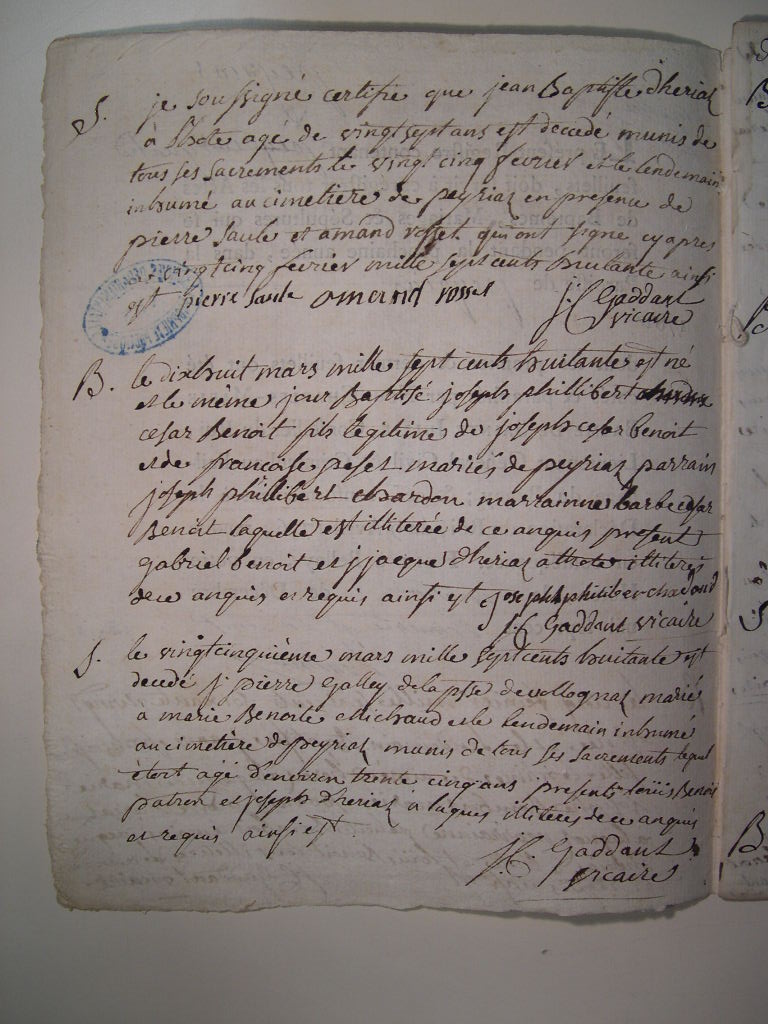 S. je soussigné certifie que jean Baptiste dheriaz
à Lhote agé de vingt sept ans est decedé munis de
tous ses sacrements le vingt cinq fevrier et le lendemain
inhumé au cimetiere de peyriaz en presence de
pierre saule et amand rosset qui ont signe cy apres
vingt cinq fevrier mille sept cents huitante ainsi
est pierre saule amand rosset J: C Gaddant
vicaire
B. le dixhuit mars mille sept cents huitante est né
et le même jour Baptisé joseph phillibert
cesar Benoit fils legitime de joseph cesar benoit
et de francoise peset mariés de peyriaz parrain
joseph phillibert chardon marrainne barbe cesar
Benoit laquelle est illiterée de ce anquis present
gabriel benoit et jjacque dheriaz a lhote illiterés
de ce anquis et requis ainsi est joseph philiber chardond
J: C Gaddant vicaire
S. le vingtcinquième mars mille sept cents huitante est
decedé j pierre Galley de la psse de vollognaz marié
a marie Benoite Michaud et le lendemain inhumé
au cimetière de peyriaz munis de tous ses sacrements lequel
étoit agé d'environ trente cinq ans presents loüis Benoit
patron et joseph d'heriaz a laques illiterés de ce anquis
et requis ainsi est
J: C. Gaddant
vicaire